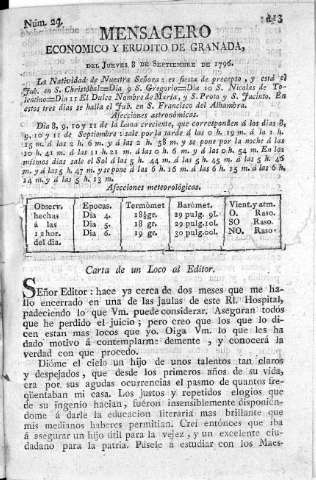 Núm. 29.
MENSAGERO
ECONOMICO Y ERUDITO DE GRANADA,
DEL JUEVES 8 DE SEPTIEMBRE DE 1796.
La Natividad de Nuestra Señora: es fiesta de precepto, y está el
Jub. en S. Christóbal=Dia 9 S. Gregorio=Dia 10 S. Nicolas de To-
lentino=Dia 11 El Dulce Nombre de María, y S. Proto y S. Jacinto. En
estos tres dias se halla el Jub. en S. Francisco del Alhambra.
Afecciones astronómicas.
Dia 8, 9, 10 y 11 de la Luna creciente, que corresponden á los dias 8,
9, 10 y 11 de Septiembre: sale por la tarde á las 0 h. 19 m. á la 1 h.
15 m. á las 2 h. 6 m. y á las 2 h. 58 m. y se pone por la noche á las
10 h. 41 m. á las 11 h. 21 m. á las 0 h. 6 m. y á las 0 h. 54 m. En los
mismos dias sale el Sol á las 5 h. 44 m. á las 5 h. 45 m. á las 5 h. 46
m. y á las 5 h. 47 m. y se pone á las 6 h. 16 m. á las 6 h. 15 m. á las 6 h.
14 m. y á las 5 h. 13 m.
Afecciones meteorológicas.
Observ. Epocas. Termómet Barómet. Vient. y atm.
hechas Dia 4. 18½gr. 29 pulg. 9l. O. Raso.
á las Dia 5. 18 gr. 29 pulg. 10l. SO Raso.
12 hor. Dia 6. 19 gr. 30 pulg. 00l. NO. Raso.
del dia.
Carta de un Loco al Editor.
SEñor Editor: hace ya cerca de dos meses que me ha-
llo encerrado en una de las jaulas de este Rl. Hospital,
padeciendo lo que Vm. puede considerar. Aseguran todos
que he perdido el juicio; pero creo que los que lo di-
cen estan mas locos que yo. Oiga Vm. lo que les ha
dado motivo á contemplarme demente, y conocerá la
verdad con que procedo.
Dióme el cielo un hijo de unos talentos tan claros
y despejados, que desde los primeros años de su vida,
era por sus agudas ocurrencias el pasmo de quantos fre-
qüentaban mi casa. Los justos y repetidos elogios que
de su ingenio hacian, fuéron insensiblemente disponién-
dome á darle la educacion literaria mas brillante que
mis medianos haberes permitian. Creí entónces que iba
á asegurar un hijo útil para la vejez, y un excelente ciu-
dadano para la patria. Púsele á estudiar con los Maes-